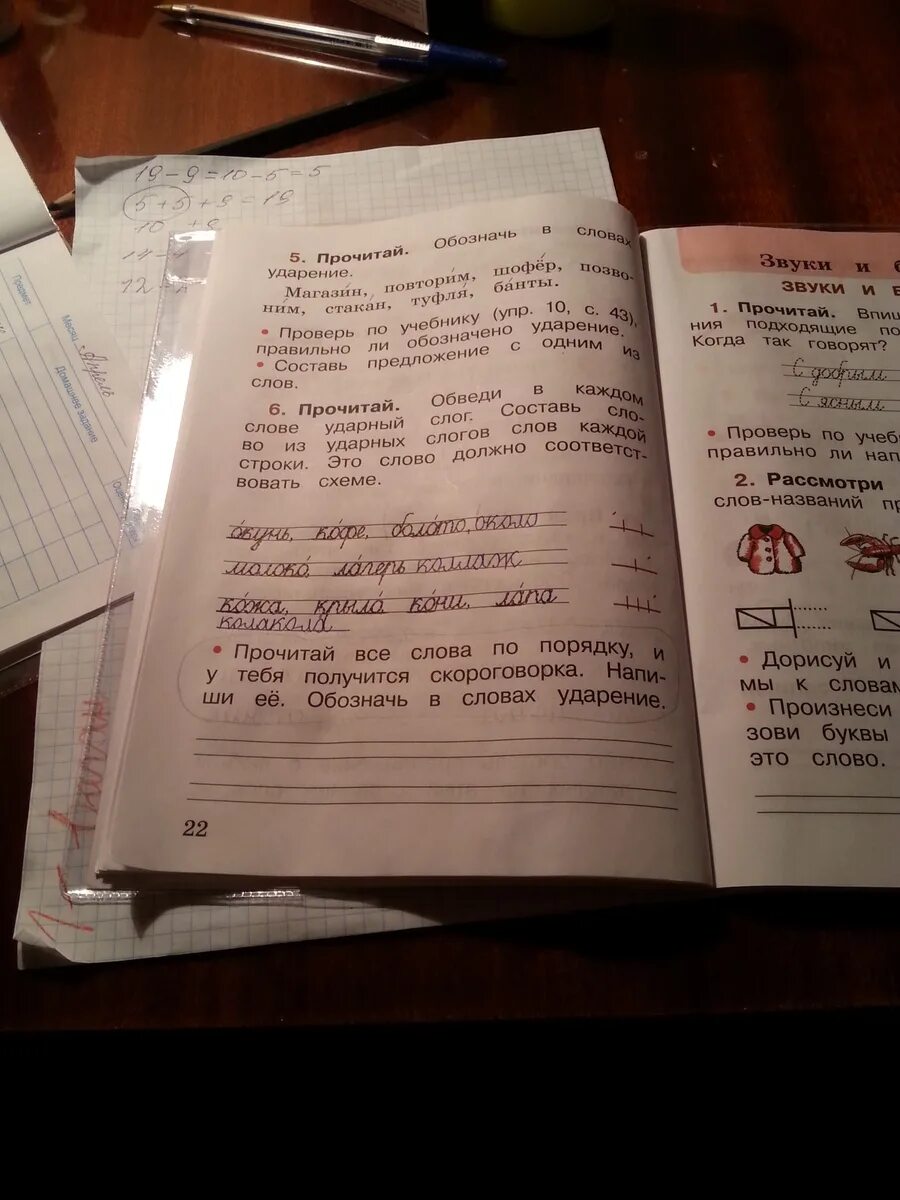 19-9=10-5=5
5+5+9=19
Предмет
Месяц
Апрель
Домашнее задание
5. Прочитай. Обозначь в словах
ударение.
Магази́н, повтори́м, шофё́р, позво-
ни́м, стака́н, туфля́, ба́нты.
• Проверь по учебнику (упр. 10, с. 43),
правильно ли обозначено ударение.
• Составь предложение с одним из
слов.
6. Прочитай. Обведи в каждом
слове ударный слог. Составь сло-
во из ударных слогов слов каждой
строки. Это слово должно соответст-
вовать схеме.
о́кунь, ко́фе, боло́то, о́коло
молоко́, ла́герь коллаж
ко́жа, крыло́ ко́ни, ла́па
колакола
• Прочитай все слова по порядку, и
у тебя получится скороговорка. Напи-
ши её. Обозначь в словах ударение.
22
Звуки и
ЗВУКИ И
1. Прочитай. Впиш
ния подходящие по
Когда так говорят?
С добрым
С ясным
• Проверь по учеб
правильно ли нап
2. Рассмотри
слов-названий пр
• Дорисуй и
мы к словам
• Произнеси
зови буквы
это слово.